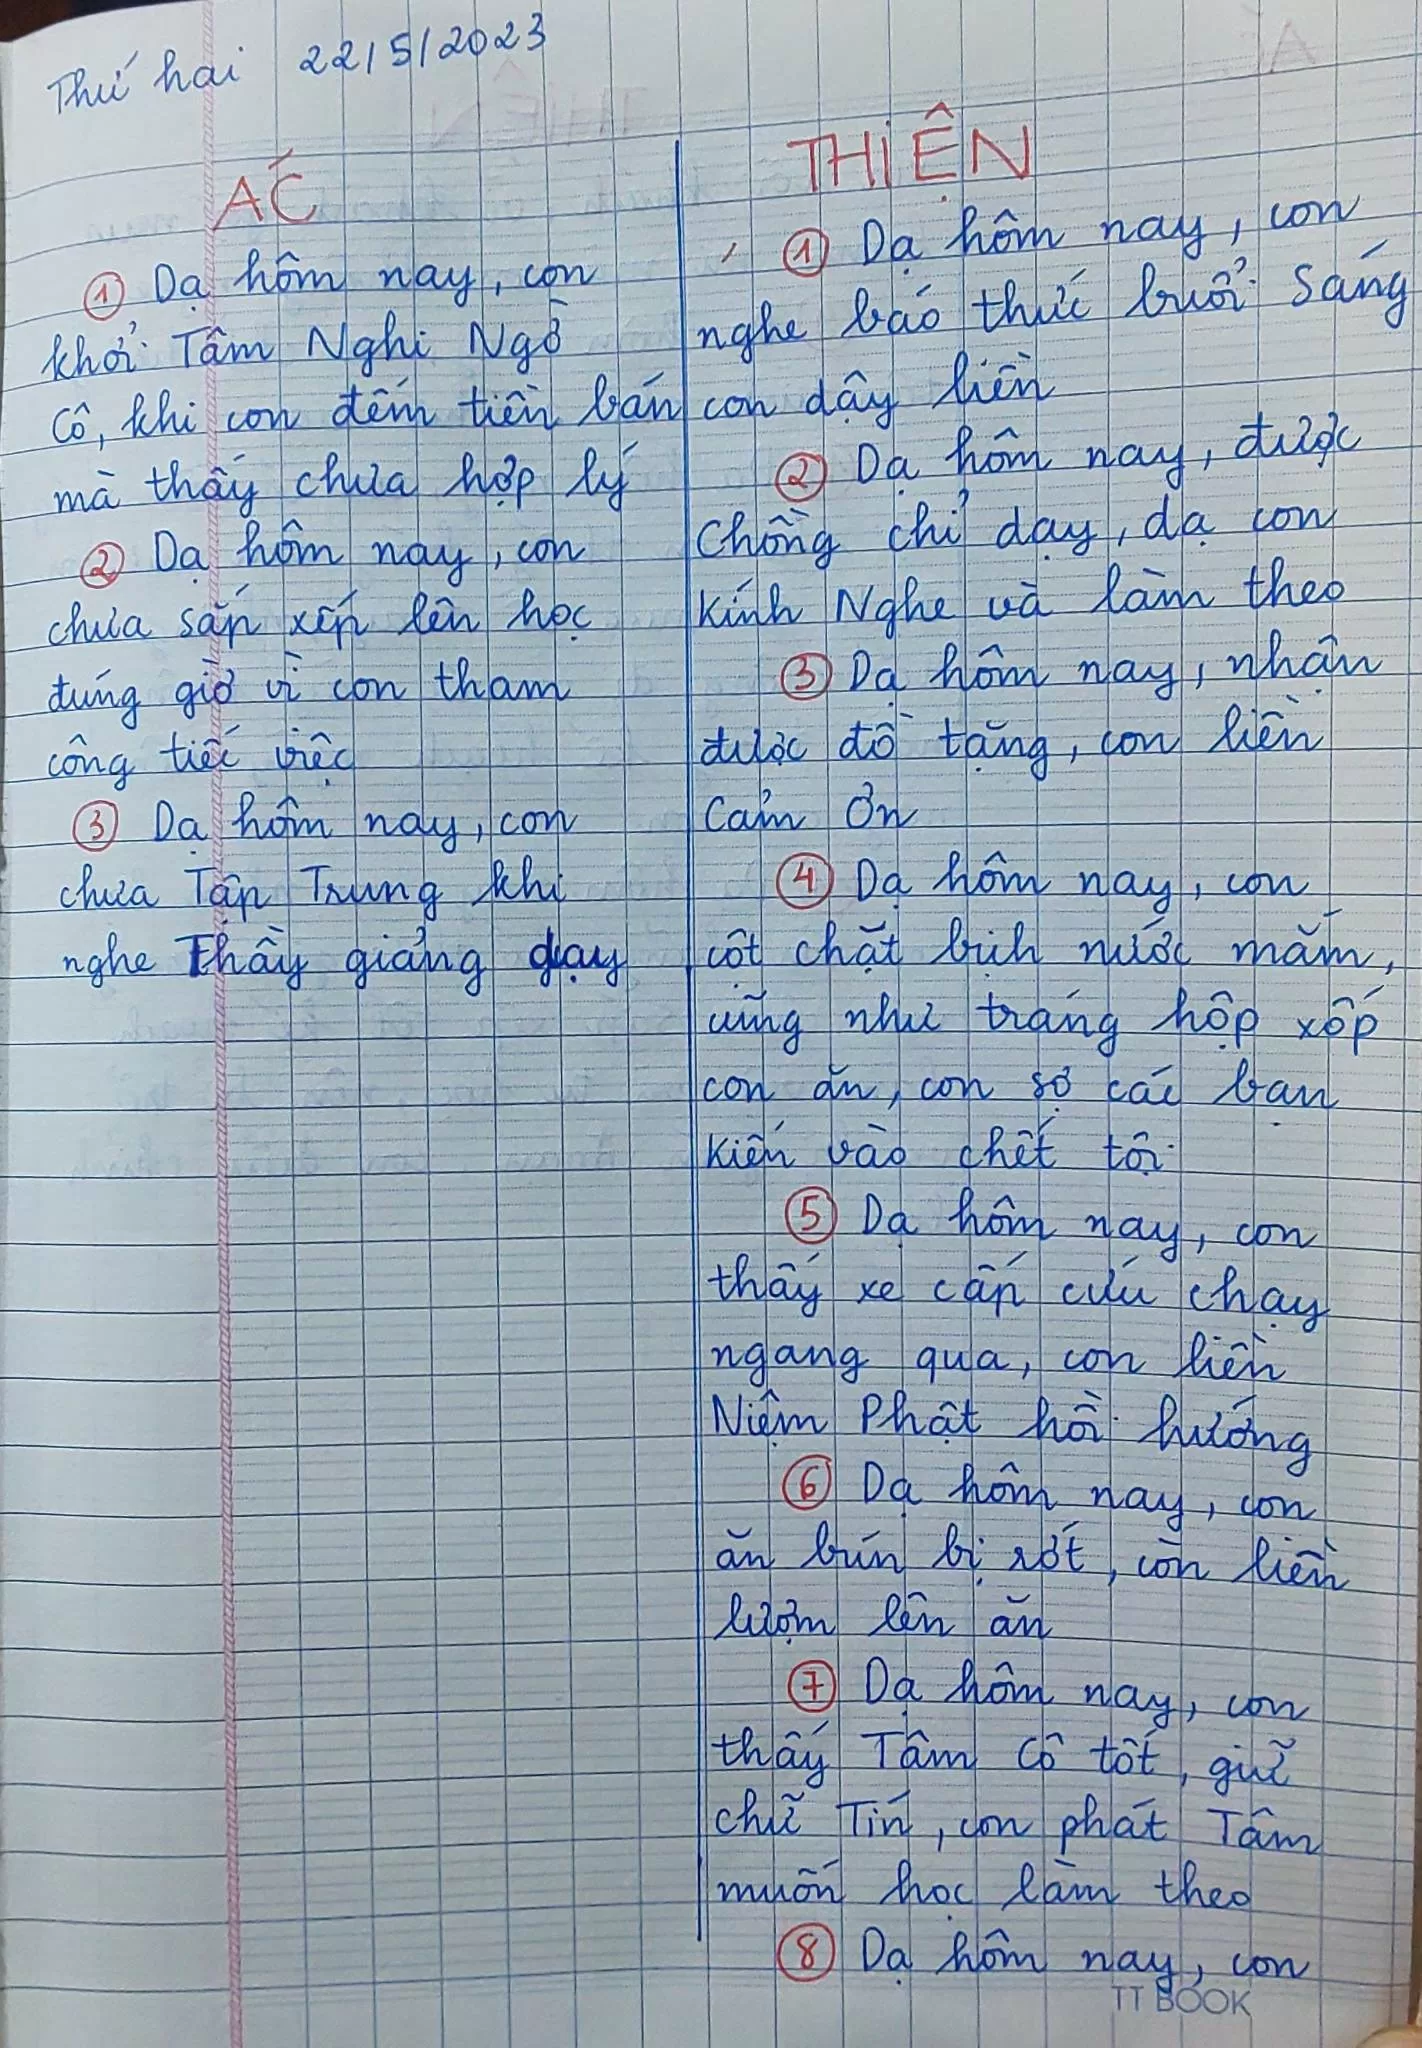 Thứ hai 22/5/2023
ÁC
① Dạ hôm nay, con
khởi Tâm Nghi Ngờ
Cô, khi con đếm tiền bán
mà thấy chưa hợp lý
② Dạ hôm nay, con
chưa sắp xếp lên học
đúng giờ vì con tham
công tiếc việc
③ Dạ hôm nay, con
chưa Tập Trung khi
nghe Thầy giảng dạy
THIỆN
① Dạ hôm nay, con
nghe báo thức buổi sáng
con dậy liền
② Dạ hôm nay, được
Chồng chỉ dạy, dạ con
Kính Nghe và làm theo
③ Dạ hôm nay, nhận
được đồ tặng, con liền
Cảm Ơn
④ Dạ hôm nay, con
cột chặt bịch nước mắm,
cũng như tráng hộp xốp
con ăn, con sợ các bạn
Kiến vào chết tội
⑤ Dạ hôm nay, con
thấy xe cấp cứu chạy
ngang qua, con liền
Niệm Phật hồi hướng
⑥ Dạ hôm nay, con
ăn bún bị rớt, con liền
lượm lên ăn
⑦ Dạ hôm nay, con
thấy Tâm Cô tốt, giữ
chữ Tín, con phát Tâm
muốn học làm theo
⑧ Dạ hôm nay, con
TT BOOK